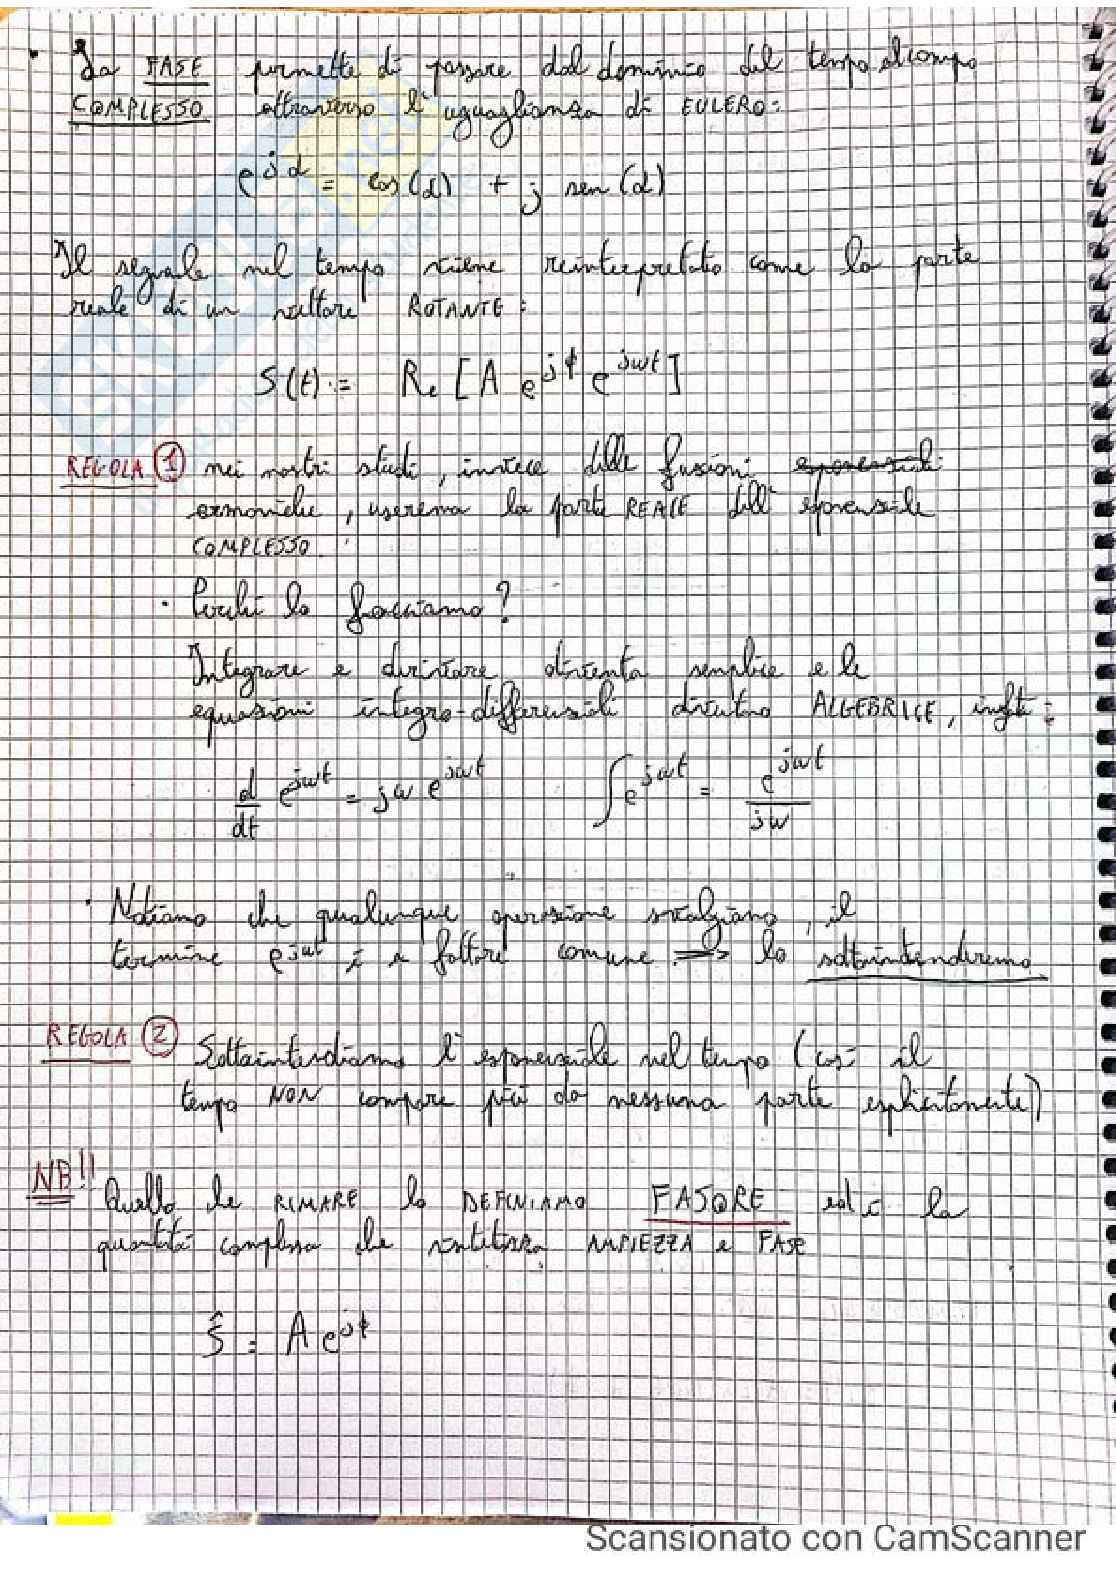 · La FASE permette di passare dal dominio del tempo al campo
COMPLESSO attraverso l'uguaglianza di EULERO:
e^{jα} = cos(α) + j sen(α)
Il segnale nel tempo viene reinterpretato come la parte
reale di un vettore ROTANTE:
S(t) := Re [A e^{jϕ} e^{jωt}]
REGOLA ① nei nostri studi, invece delle funzioni esponenziali
armoniche, useremo la parte REALE dell'esponenziale
COMPLESSO.
· Perché lo facciamo?
Integrare e derivare diventa semplice e le
equazioni integro-differenziali ALGEBRICE, infatti:
d/dt e^{jωt} = jω e^{jωt} ∫ e^{jωt} = e^{jωt}/jω
· Notiamo che qualunque operazione svolgiamo, il
termine e^{jωt} è a fattore comune => lo sottointenderemo
REGOLA ② Sottointendiamo l'esponenziale nel tempo (così il
tempo NON compare più da nessuna parte esplicitamente)
NB!! Quello che RIMANE lo DEFINIAMO FASORE ed è la
quantità complessa che sintetizza AMPIEZZA e FASE
Ŝ = A e^{jϕ}
Scansionato con CamScanner